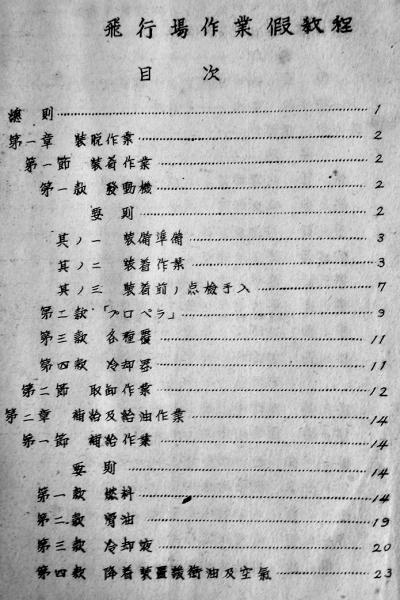 飛行場作業假教程
目次
總則 1
第一章 裝脱作業 2
第一節 裝着作業 2
第一款 發動機 2
要則 2
其ノ一 裝備準備 3
其ノ二 裝着作業 3
其ノ三 裝着前ノ点檢手入 7
第二款 「プロペラ」 9
第三款 各種覆 11
第四款 冷却器 11
第二節 取卸作業 12
第二章 補給及給油作業 14
第一節 補給作業 14
要則 14
第一款 燃料 14
第二款 滑油 19
第三款 冷却液 20
第四款 降着裝置緩衝油及空氣 23